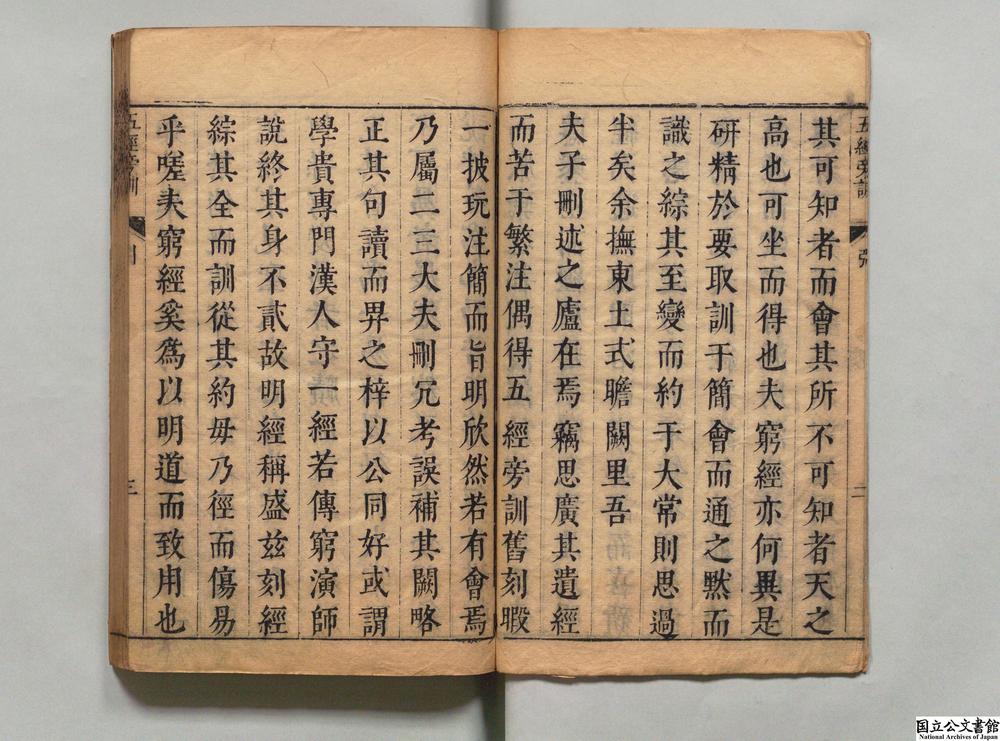 五經旁訓
二
其可知者而會其所不可知者天之
高也可坐而得也夫窮經亦何異是
研精於要取訓于簡會而通之黙而
識之綜其至變而約于大常則思過
半矣余撫東土式瞻闕里吾
夫子刪述之廬在焉竊思廣其遺經
而苦于繁注偶得五經旁訓舊刻暇
一披玩注簡而旨明欣然若有會焉
乃屬二三大夫刪冗考誤補其闕略
正其句讀而畀之梓以公同好或謂
學貴專門漢人守一經若傳窮演師
說終其身不貳故明經稱盛玆刻經
綜其全而訓從其約毋乃徑而傷易
乎嗟夫窮經奚爲以明道而致用也
五經旁訓
三
国立公文書館
National Archives of Japan